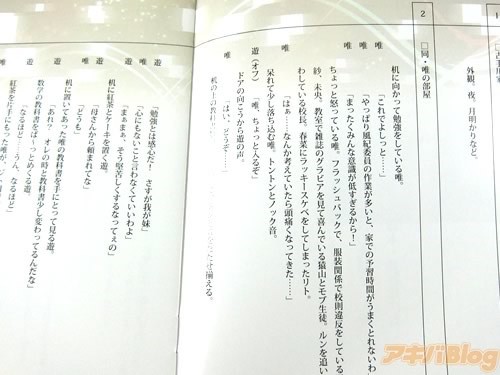 2
□同・唯の部屋
外観。夜。月明かりなど。
机に向かって勉強をしている唯。
唯
「これでよしっと……」
唯
「やっぱり風紀委員の作業が多いと、家での予習時間がうまくとれないわ
唯
「まったくみんな意識が低すぎるから!」
ちょっと怒っている唯。フラッシュバックで、服装関係で校則違反をしている
紗、未央。教室で雑誌のグラビアを見て喜んでいる猿山とモブ生徒。ルンを追い
わしている校長。春菜にラッキースケベをしてしまったリト。
唯
「はぁ……なんか考えていたら頭痛くなってきた……」
呆れて少し落ち込む唯。トントンとノック音。
遊(オフ)
「唯、ちょっと入るぞ」
ドアの向こうから遊の声。
唯
「はい、どうぞ……」
机の上の
せ揃える。
遊
「勉強とは感心だ! さすが我が妹」
唯
「心にもないこと言わなくていいわよ」
遊
「まぁまぁ、そう堅苦しくするなってぇの」
机に紅茶とケーキを置く遊。
遊
「母さんから頼まれてな」
唯
「どうも」
机に置いてあった唯の教科書を手にとって見る遊。
遊
「あれ? オレの時と教科書少し変わってるんだな」
数学の教科書をぱーっとめくる遊。
遊
「なるほど……うん、なるほど」
紅茶を片手にもった唯が、
アキバBlog